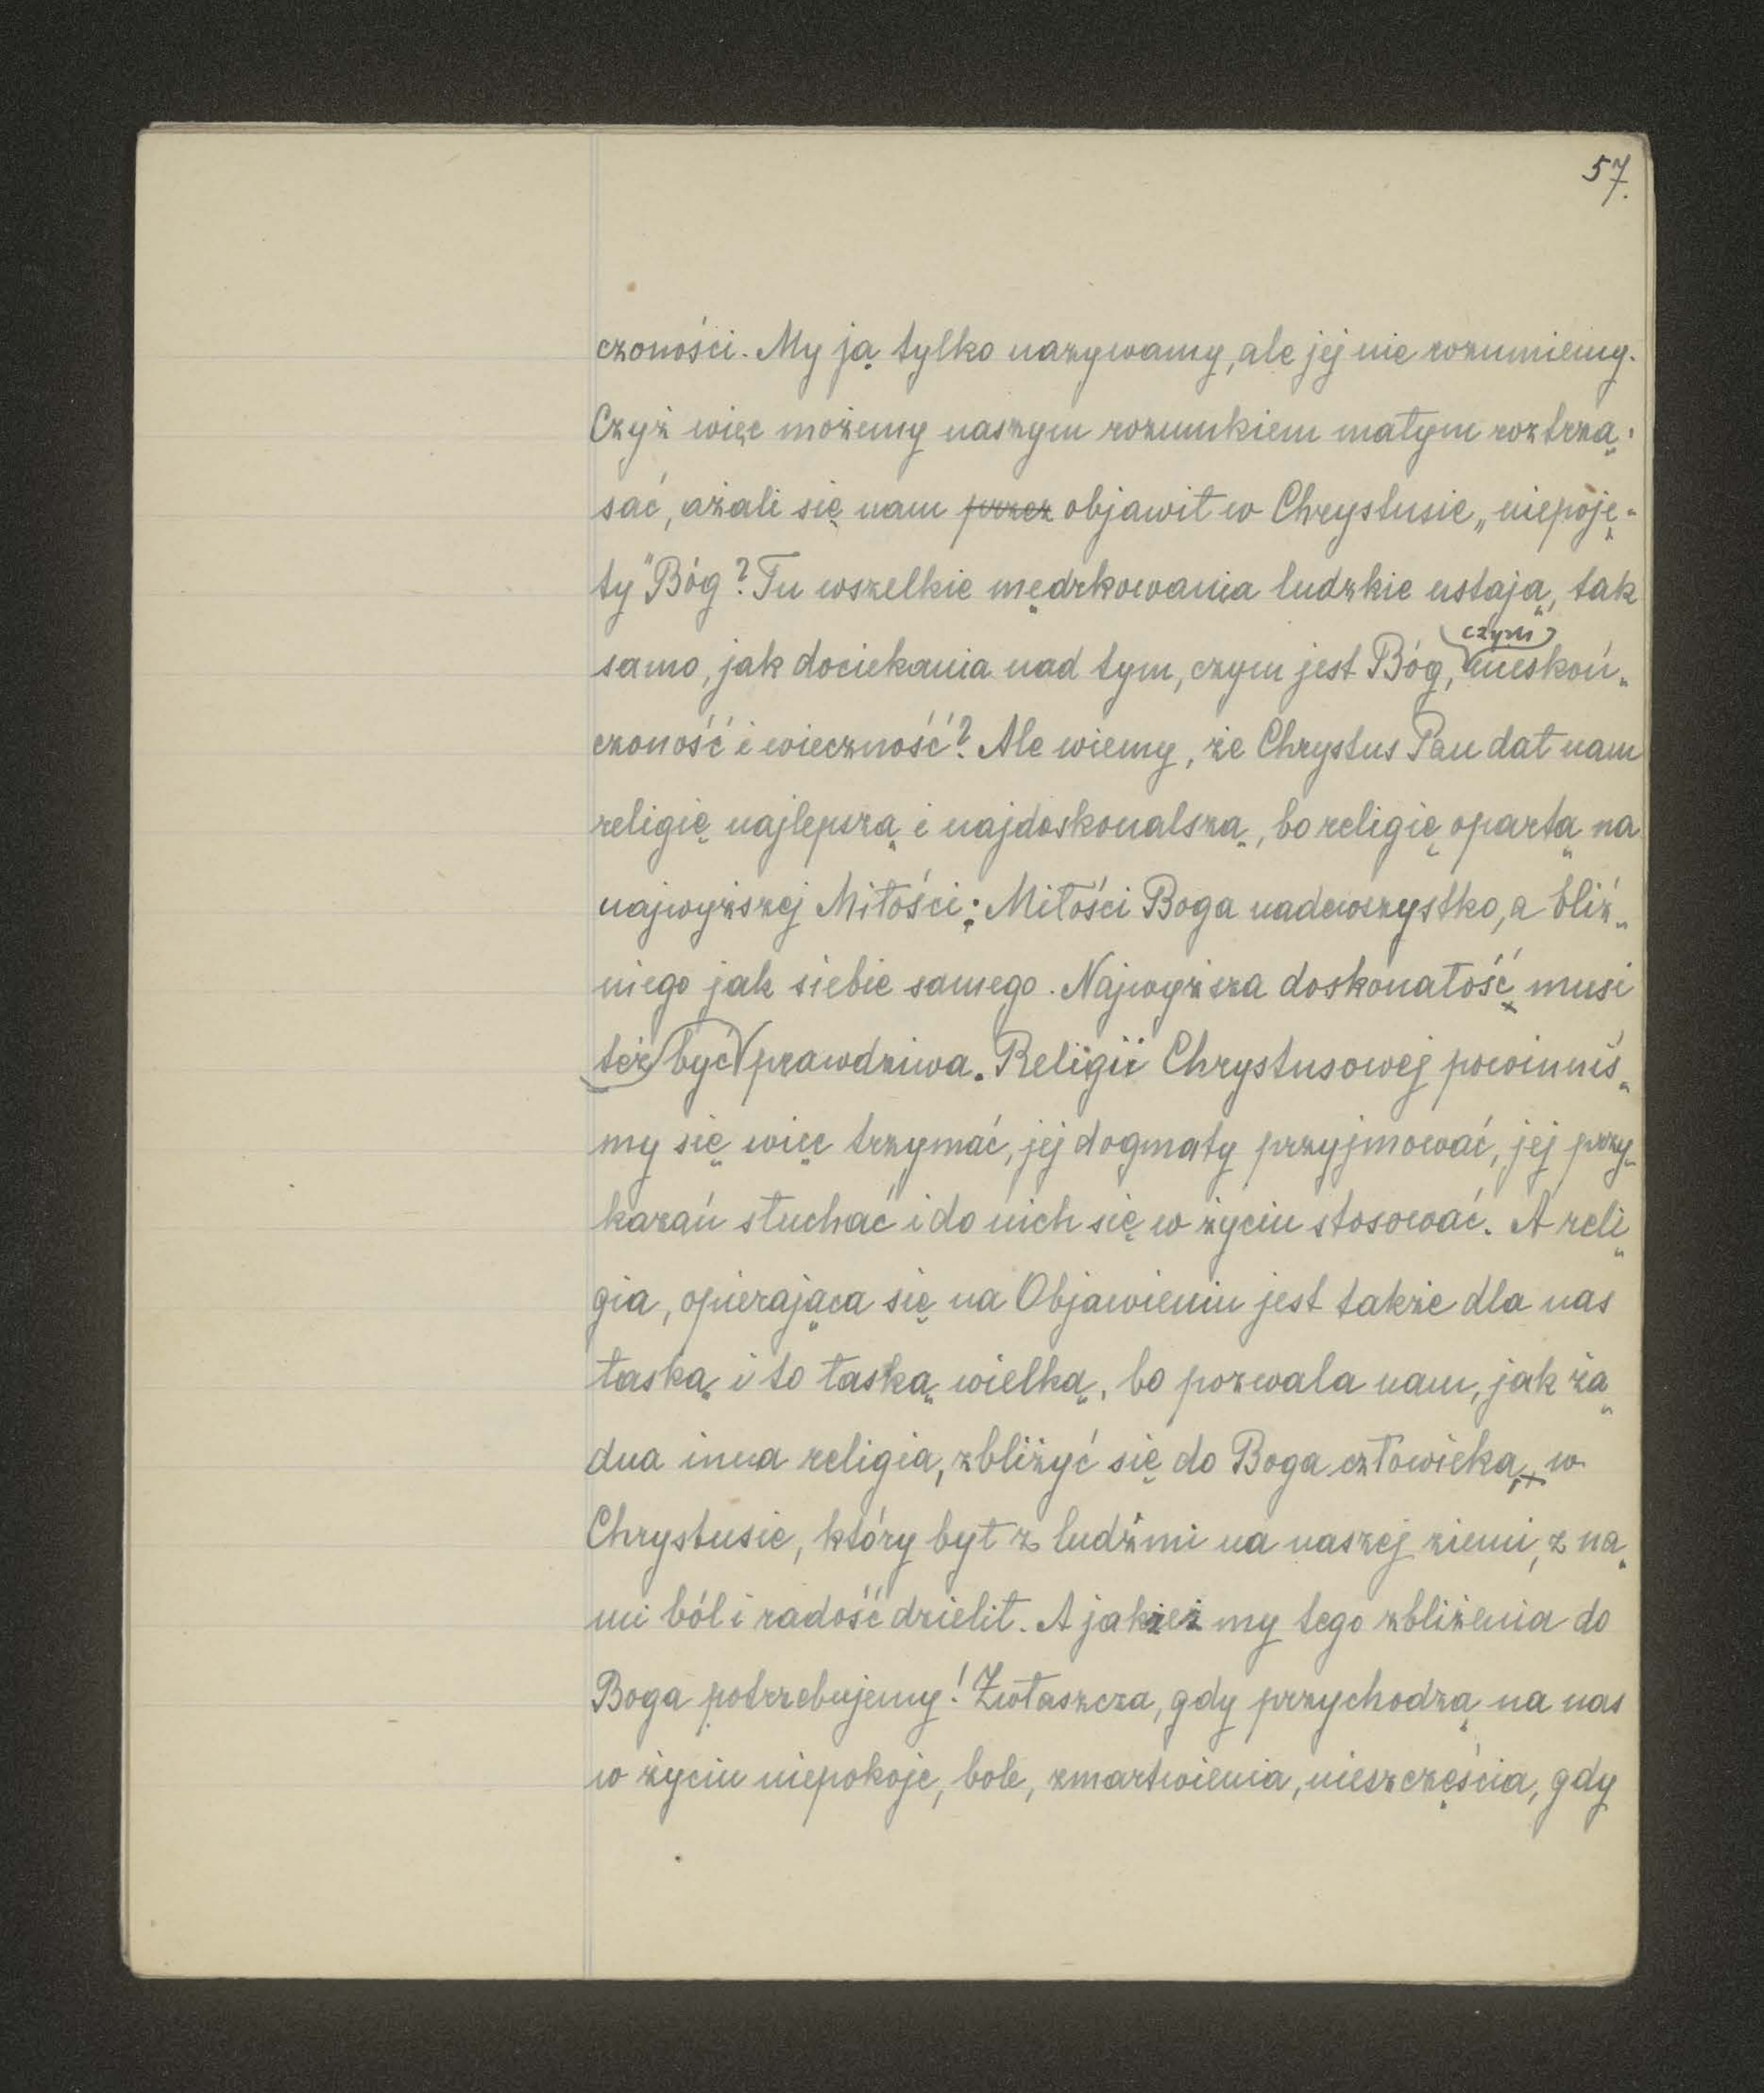 57.
czoności. My ją tylko nazywamy, ale jej nie rozumiemy.
Czyż więc możemy naszym rozumkiem małym roztrzą-
sać, ażali się nam przez objawił w Chrystusie „niepoję-
ty" Bóg? Tu wszelkie mędrkowania ludzkie ustają, tak
samo, jak dociekania nad tym, czym jest Bóg, czym nieskoń-
czoność i wieczność? Ale wiemy, że Chrystus Pan dał nam
religię najlepszą i najdoskonalszą, bo religię opartą na
najwyższej Miłości: Miłości Boga nadewszystko, a bliź-
niego jak siebie samego. Najwyższa doskonałość musi
też być prawdziwa. Religii Chrystusowej powinniś-
my się więc trzymać, jej dogmaty przyjmować, jej przy-
kazań słuchać i do nich się w życiu stosować. A reli-
gia, opierająca się na Objawieniu jest także dla nas
łaską i to łaską wielką, bo pozwala nam, jak żą-
dna inna religia, zbliżyć się do Boga człowieka, w
Chrystusie, który był z ludźmi na naszej ziemi, z na-
mi ból i radość dzielił. A jakżeż my tego zbliżenia do
Boga potrzebujemy! Zwłaszcza, gdy przychodzą na nas
w życiu niepokoje, bole, zmartwienia, nieszczęścia, gdy